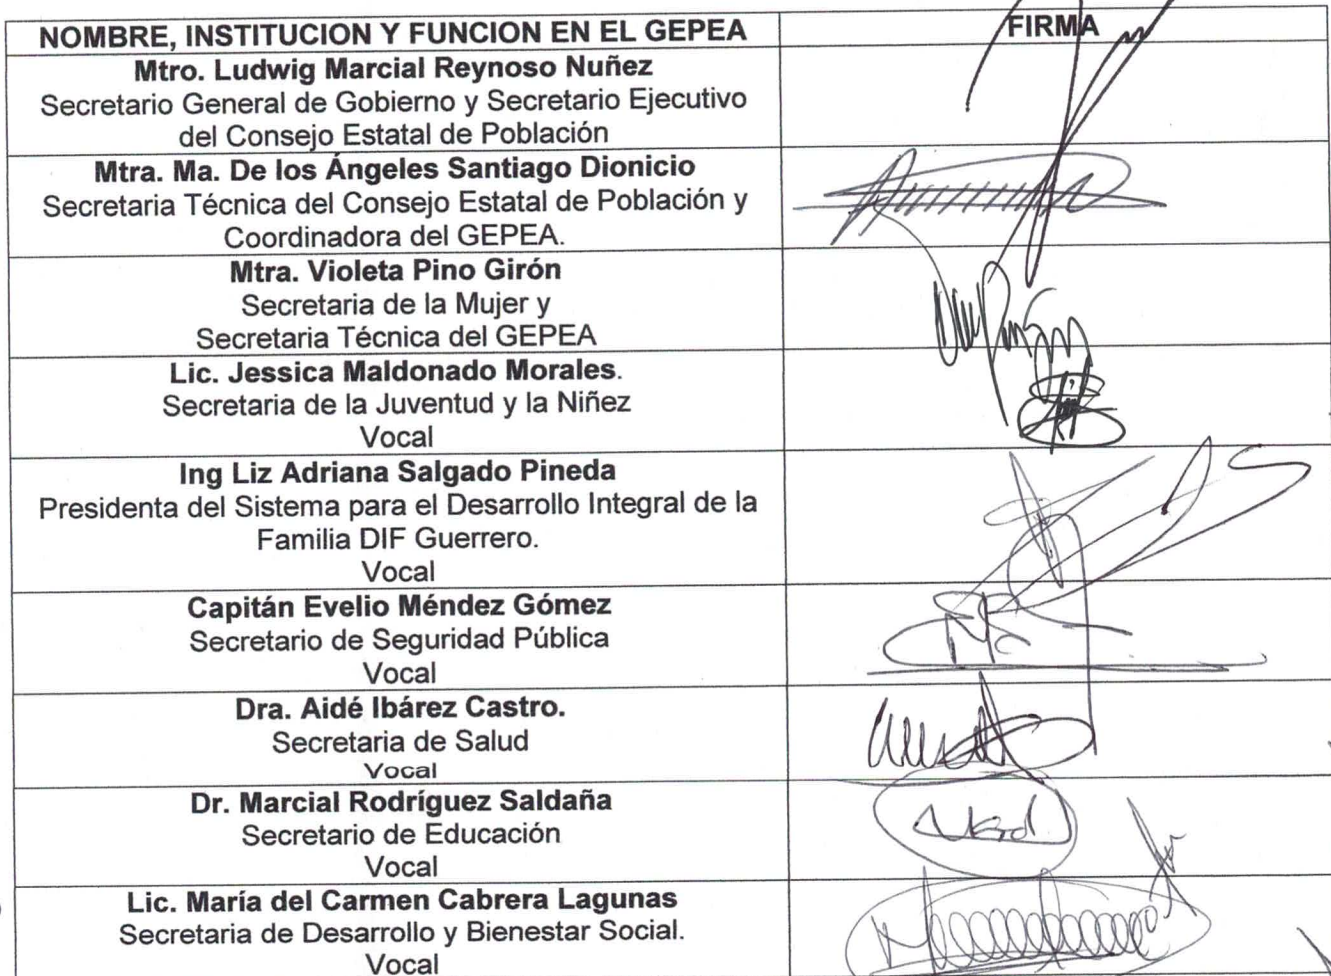 NOMBRE, INSTITUCION Y FUNCION EN EL GEPEA FIRMA
Mtro. Ludwig Marcial Reynoso Nuñez
Secretario General de Gobierno y Secretario Ejecutivo
del Consejo Estatal de Población
Mtra. Ma. De los Ángeles Santiago Dionicio
Secretaria Técnica del Consejo Estatal de Población y
Coordinadora del GEPEA.
Mtra. Violeta Pino Girón
Secretaria de la Mujer y
Secretaria Técnica del GEPEA
Lic. Jessica Maldonado Morales.
Secretaria de la Juventud y la Niñez
Vocal
Ing Liz Adriana Salgado Pineda
Presidenta del Sistema para el Desarrollo Integral de la
Familia DIF Guerrero.
Vocal
Capitán Evelio Méndez Gómez
Secretario de Seguridad Pública
Vocal
Dra. Aidé Ibárez Castro.
Secretaria de Salud
Vocal
Dr. Marcial Rodríguez Saldaña
Secretario de Educación
Vocal
Lic. María del Carmen Cabrera Lagunas
Secretaria de Desarrollo y Bienestar Social.
Vocal